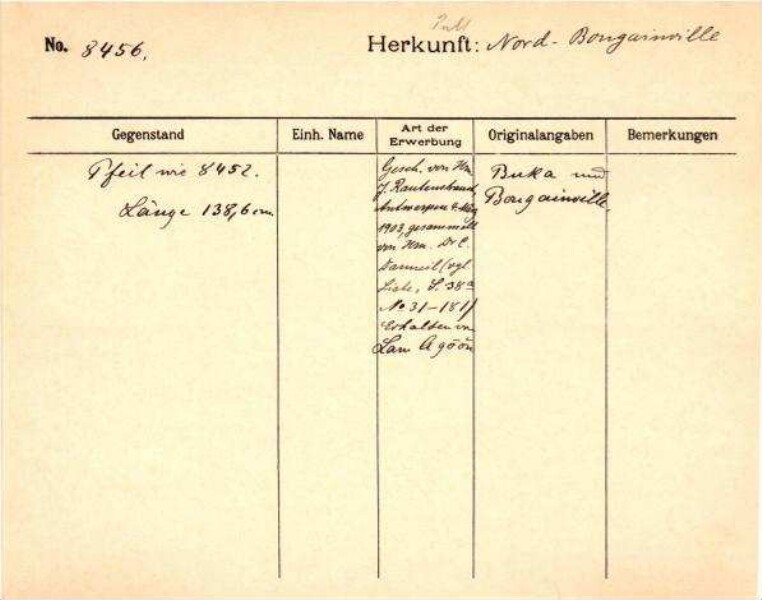 No. 8456.
Herkunft: Nord-Bougainville
Gegenstand
Einh. Name
Art der Erwerbung
Originalangaben
Bemerkungen
Pfeil wie 8452.
Länge 138,6 cm.
Gesch. von Hrn.
J. Rautenstrauch,
Antwerpen
1903, gesammelt
von Hrn. Dr C.
Danneil (vgl.
Liste, S. 38a
No 31-181)
Erhalten von
Lam
Buka und
Bougainville.